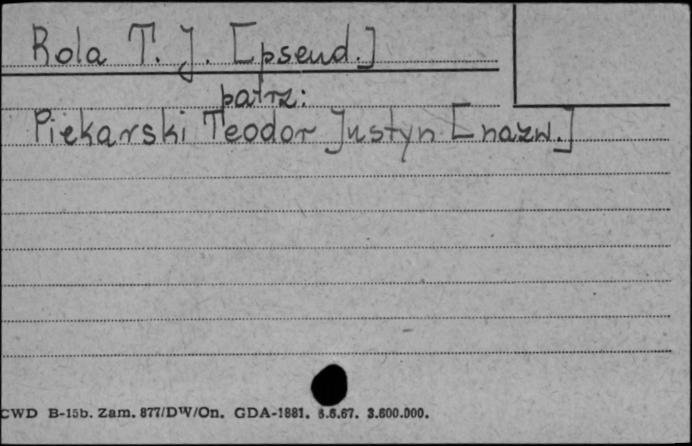 Rola T. J. [pseud.]
patrz:
Piekarski Teodor Justyn [nazw.]
CWD B-15b. Zam. 877/DW/On. GDA-1881. 6.6.67. 3.600.000.